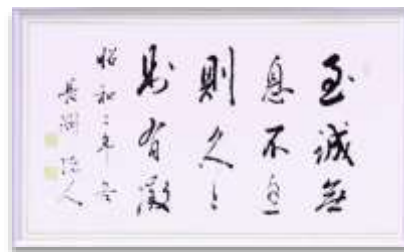 至誠無
息不息
則久々
則有徴
昭和二年冬
長
人